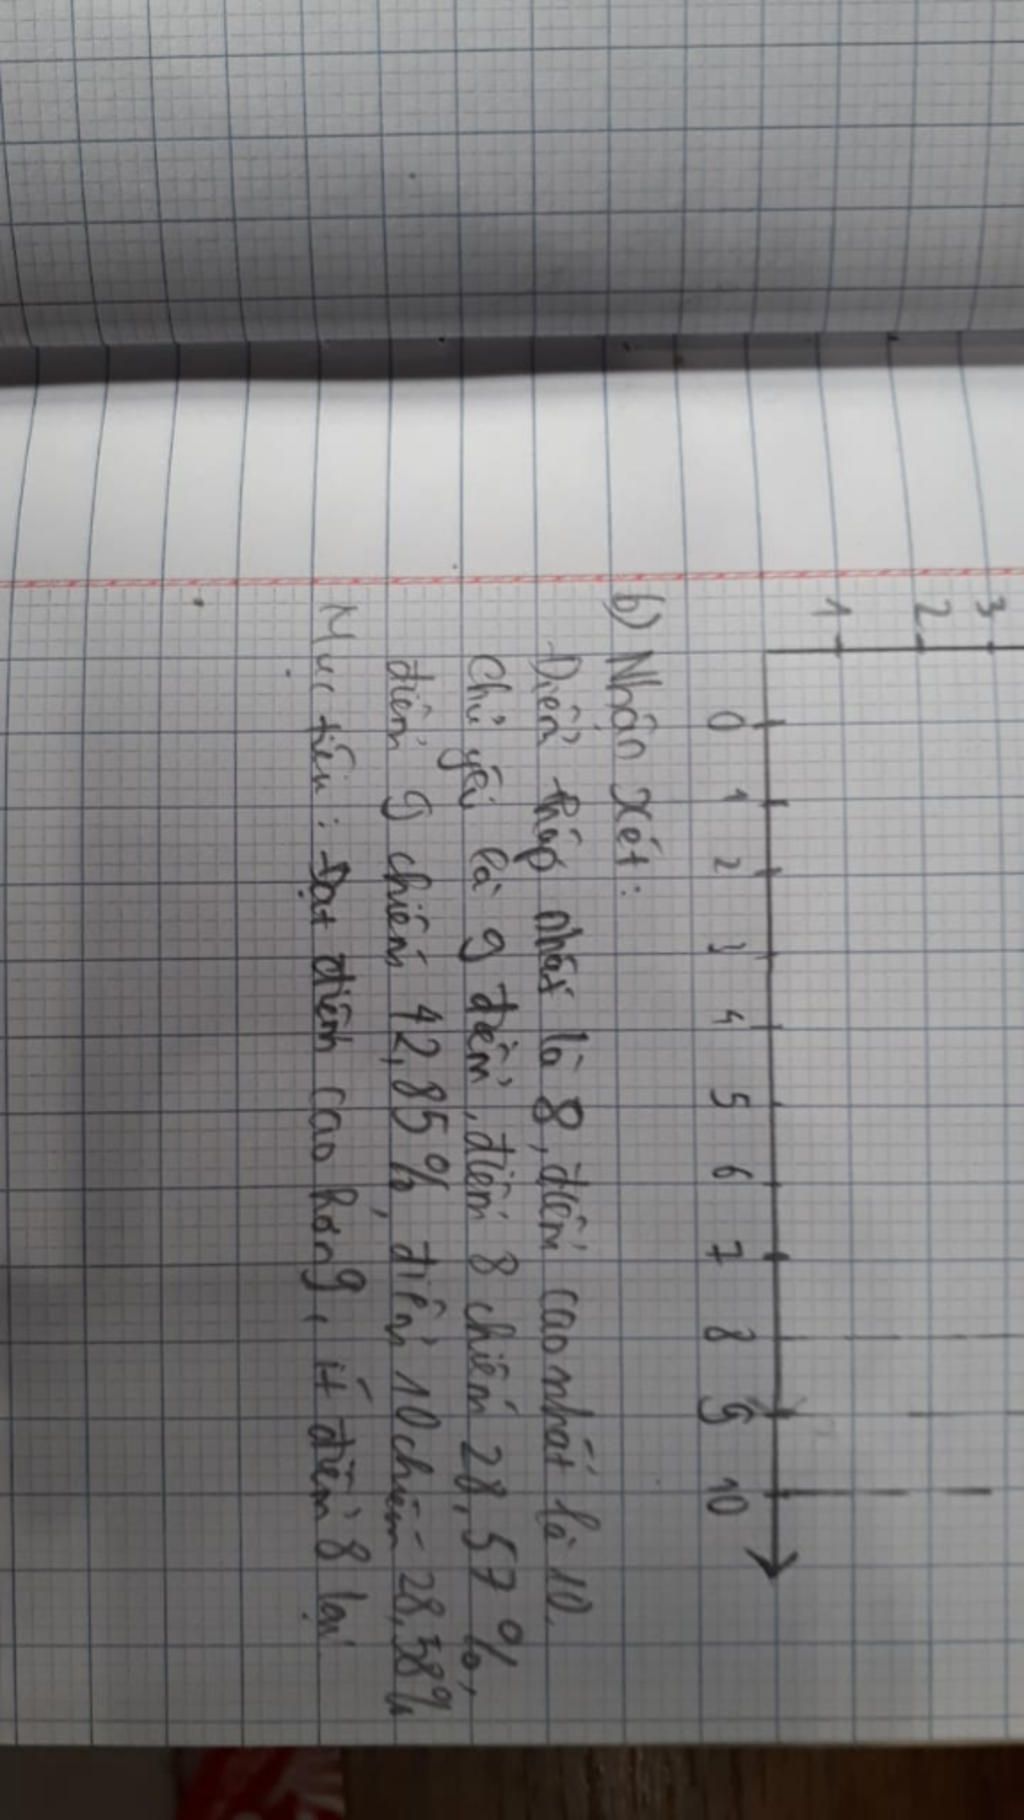 3
2
1
0 1 2 3 4 5 6 7 8 9 10
b) Nhận xét:
Điểm thấp nhất là 8, điểm cao nhất là 10.
Chủ yếu là 9 điểm, điểm 8 chiếm 28,57%,
điểm 9 chiếm 42,85%, điểm 10 chiếm 28,58%
Mục tiêu: Đạt điểm cao hơn, ít điểm 8 lại